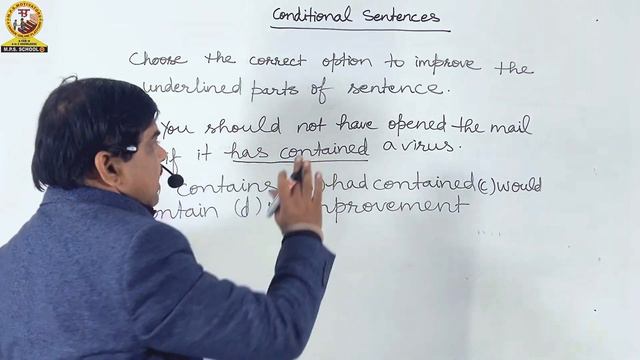 M.P.S. SCHOOL
Conditional Sentences
Choose the correct option to improve the
underlined parts of sentence.
You should not have opened the mail
if it has contained a virus.
Contains had contained (c) would
(d) improvement